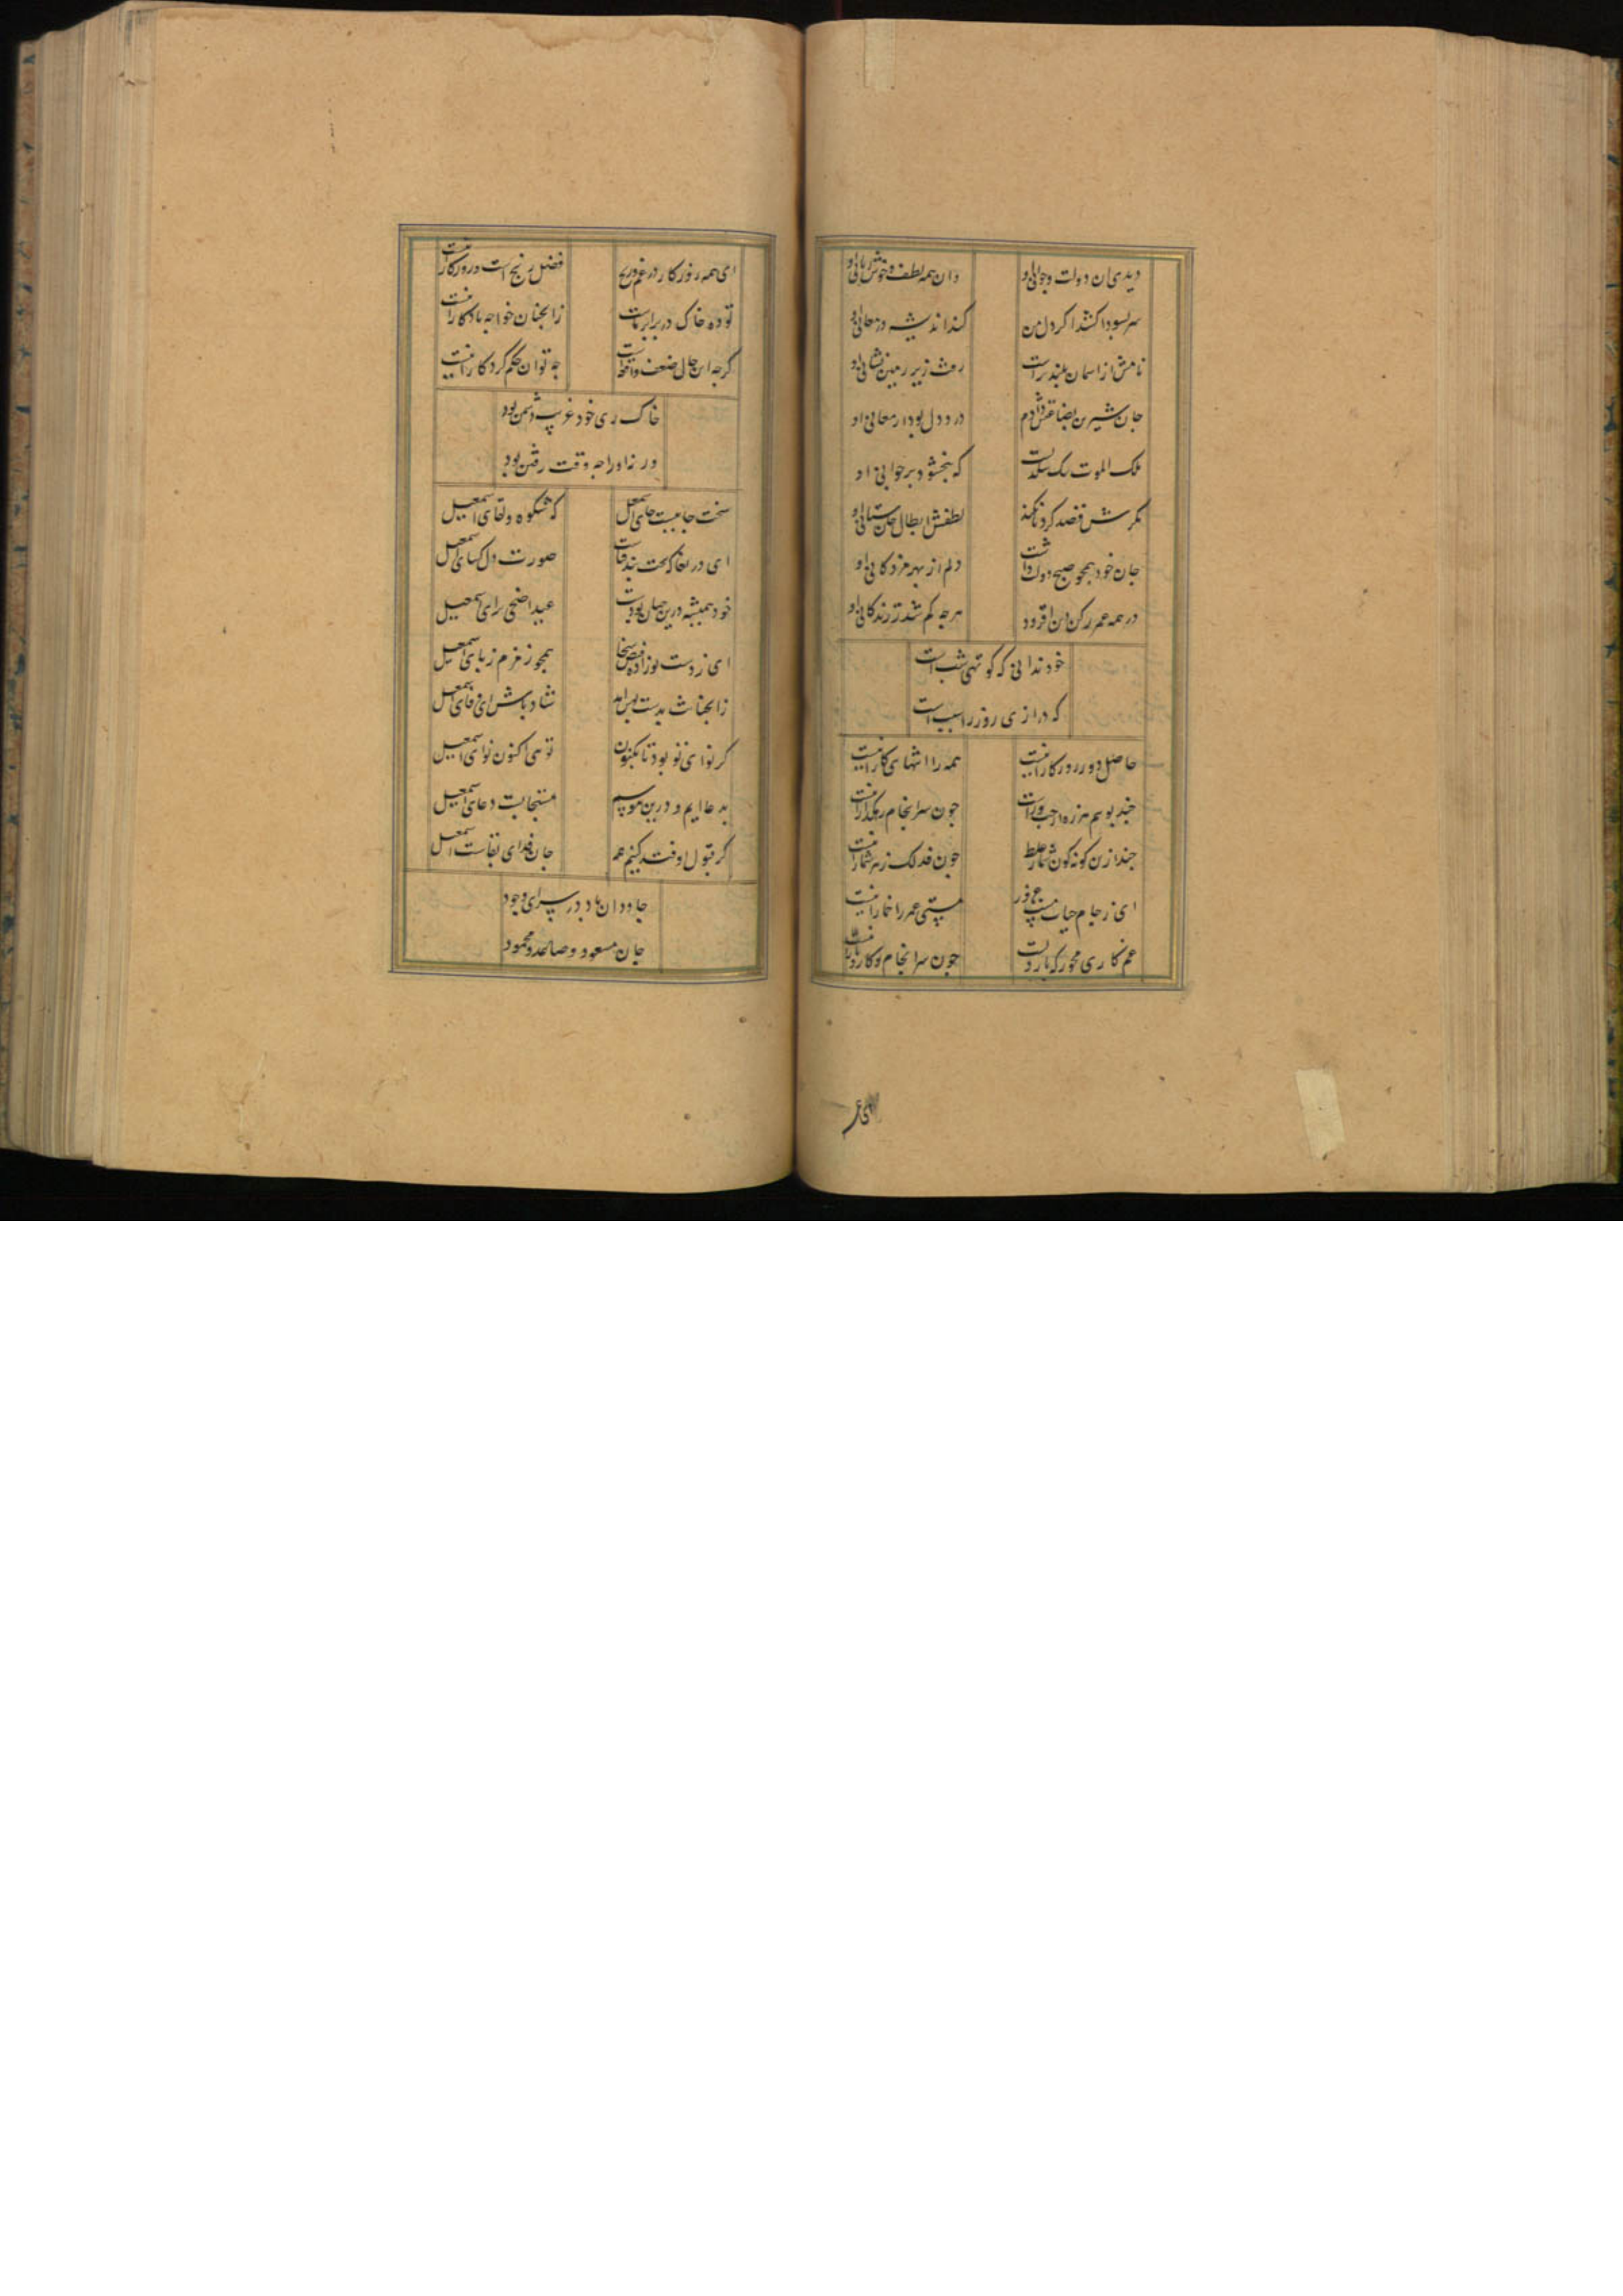 دیدی ان دولت و جوانی او
وان همه لطف و خوش زبانی او
سر بسودا کشد اکر دل من
کند اندیشه در معانی او
نامش از اسمان بلندتر است
رفت زیر زمین نشانی او
جان شیرین بضاعتش دادم
درد دل بود ارمعانی او
ملک الموت
که نبخشود بر جوانی او
قصد کرد
لطفش ابطال جان ستانی او
جان خود همجو صبح
دلم از بهر مژدکانی او
در همه عمر رکن دین افزود
هرجه کم شد ز زندکانی او
خود ندانی که کوتهی شب است
که درازی روز را سبب است
حاصل دور روزکار اینست
همه را انتهای کار اینست
جند بوییم هرزه از جب و راست
جون سرانجام رهکذار اینست
جند ازین کونه کون شمار غلط
جون فذلک زهر شمار اینست
ای ز جام حیات مست غرور
مستی عمر را خمار اینست
غم کاری مخور که
جون سرانجام و کار و بار اینست
ای همه روزکار در غم و رنج
فضل رنج است و روزکار اینست
توده خاک در برابر ماست
زانجنان خواجه یادکار اینست
کرجه این حال ضعف و
جه توان حکم کردکار اینست
خاک ری خود غریب دشمن بود
ورنه او را جه وقت رفتن بود
سخت جاییست جای اسمعیل
کو شکوه و لقای اسمعیل
ای دریغا که
صورت دل کشای اسمعیل
خود همیشه درین جهان بودست
عید اضحی برای اسمعیل
ای ز دست تو زاده فیض سخا
همجو زمزم ز پای اسمعیل
زانجنانت بدست
شاد باش ای قفای اسمعیل
کر نوای تو بود تا بکنون
توهی اکنون نوای اسمعیل
بدعا ایم و درین موسم
مستجابست دعای اسمعیل
کر قبول اوفتد کنیم همه
جان فدای بقات اسمعیل
جاودان باد در سرای وجود
جان مسعود و صاعد و محمود